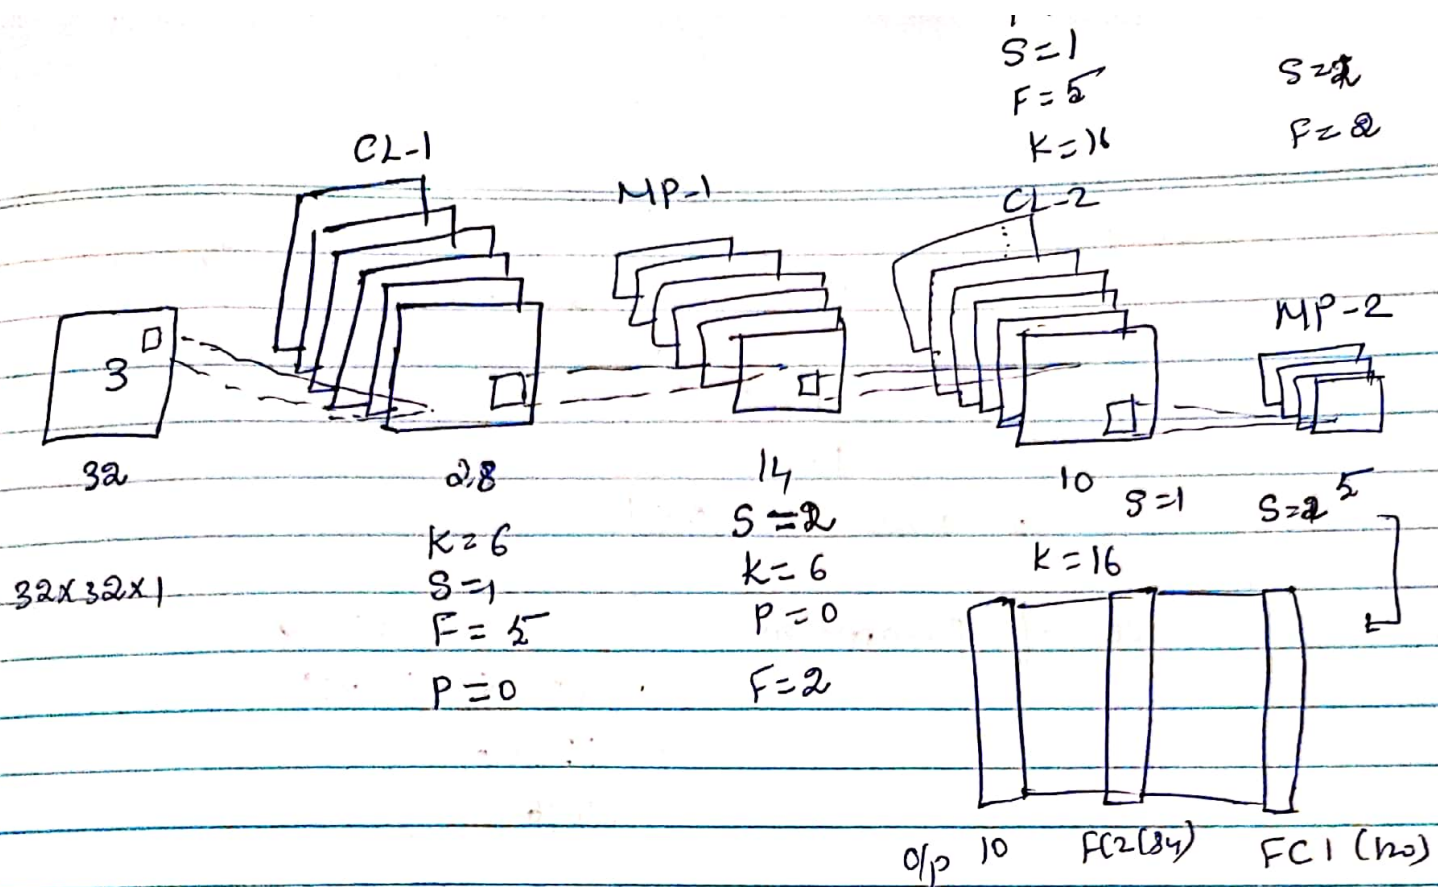 S=1
F=5
K=16
S=2
F=2
CL-1
MP-1
CL-2
MP-2
3
32
28
14
10
5
32x32x1
K=6
S=1
F=5
P=0
S=2
K=6
P=0
F=2
S=1
K=16
S=2
O/p 10
FC2(84)
FC1 (120)